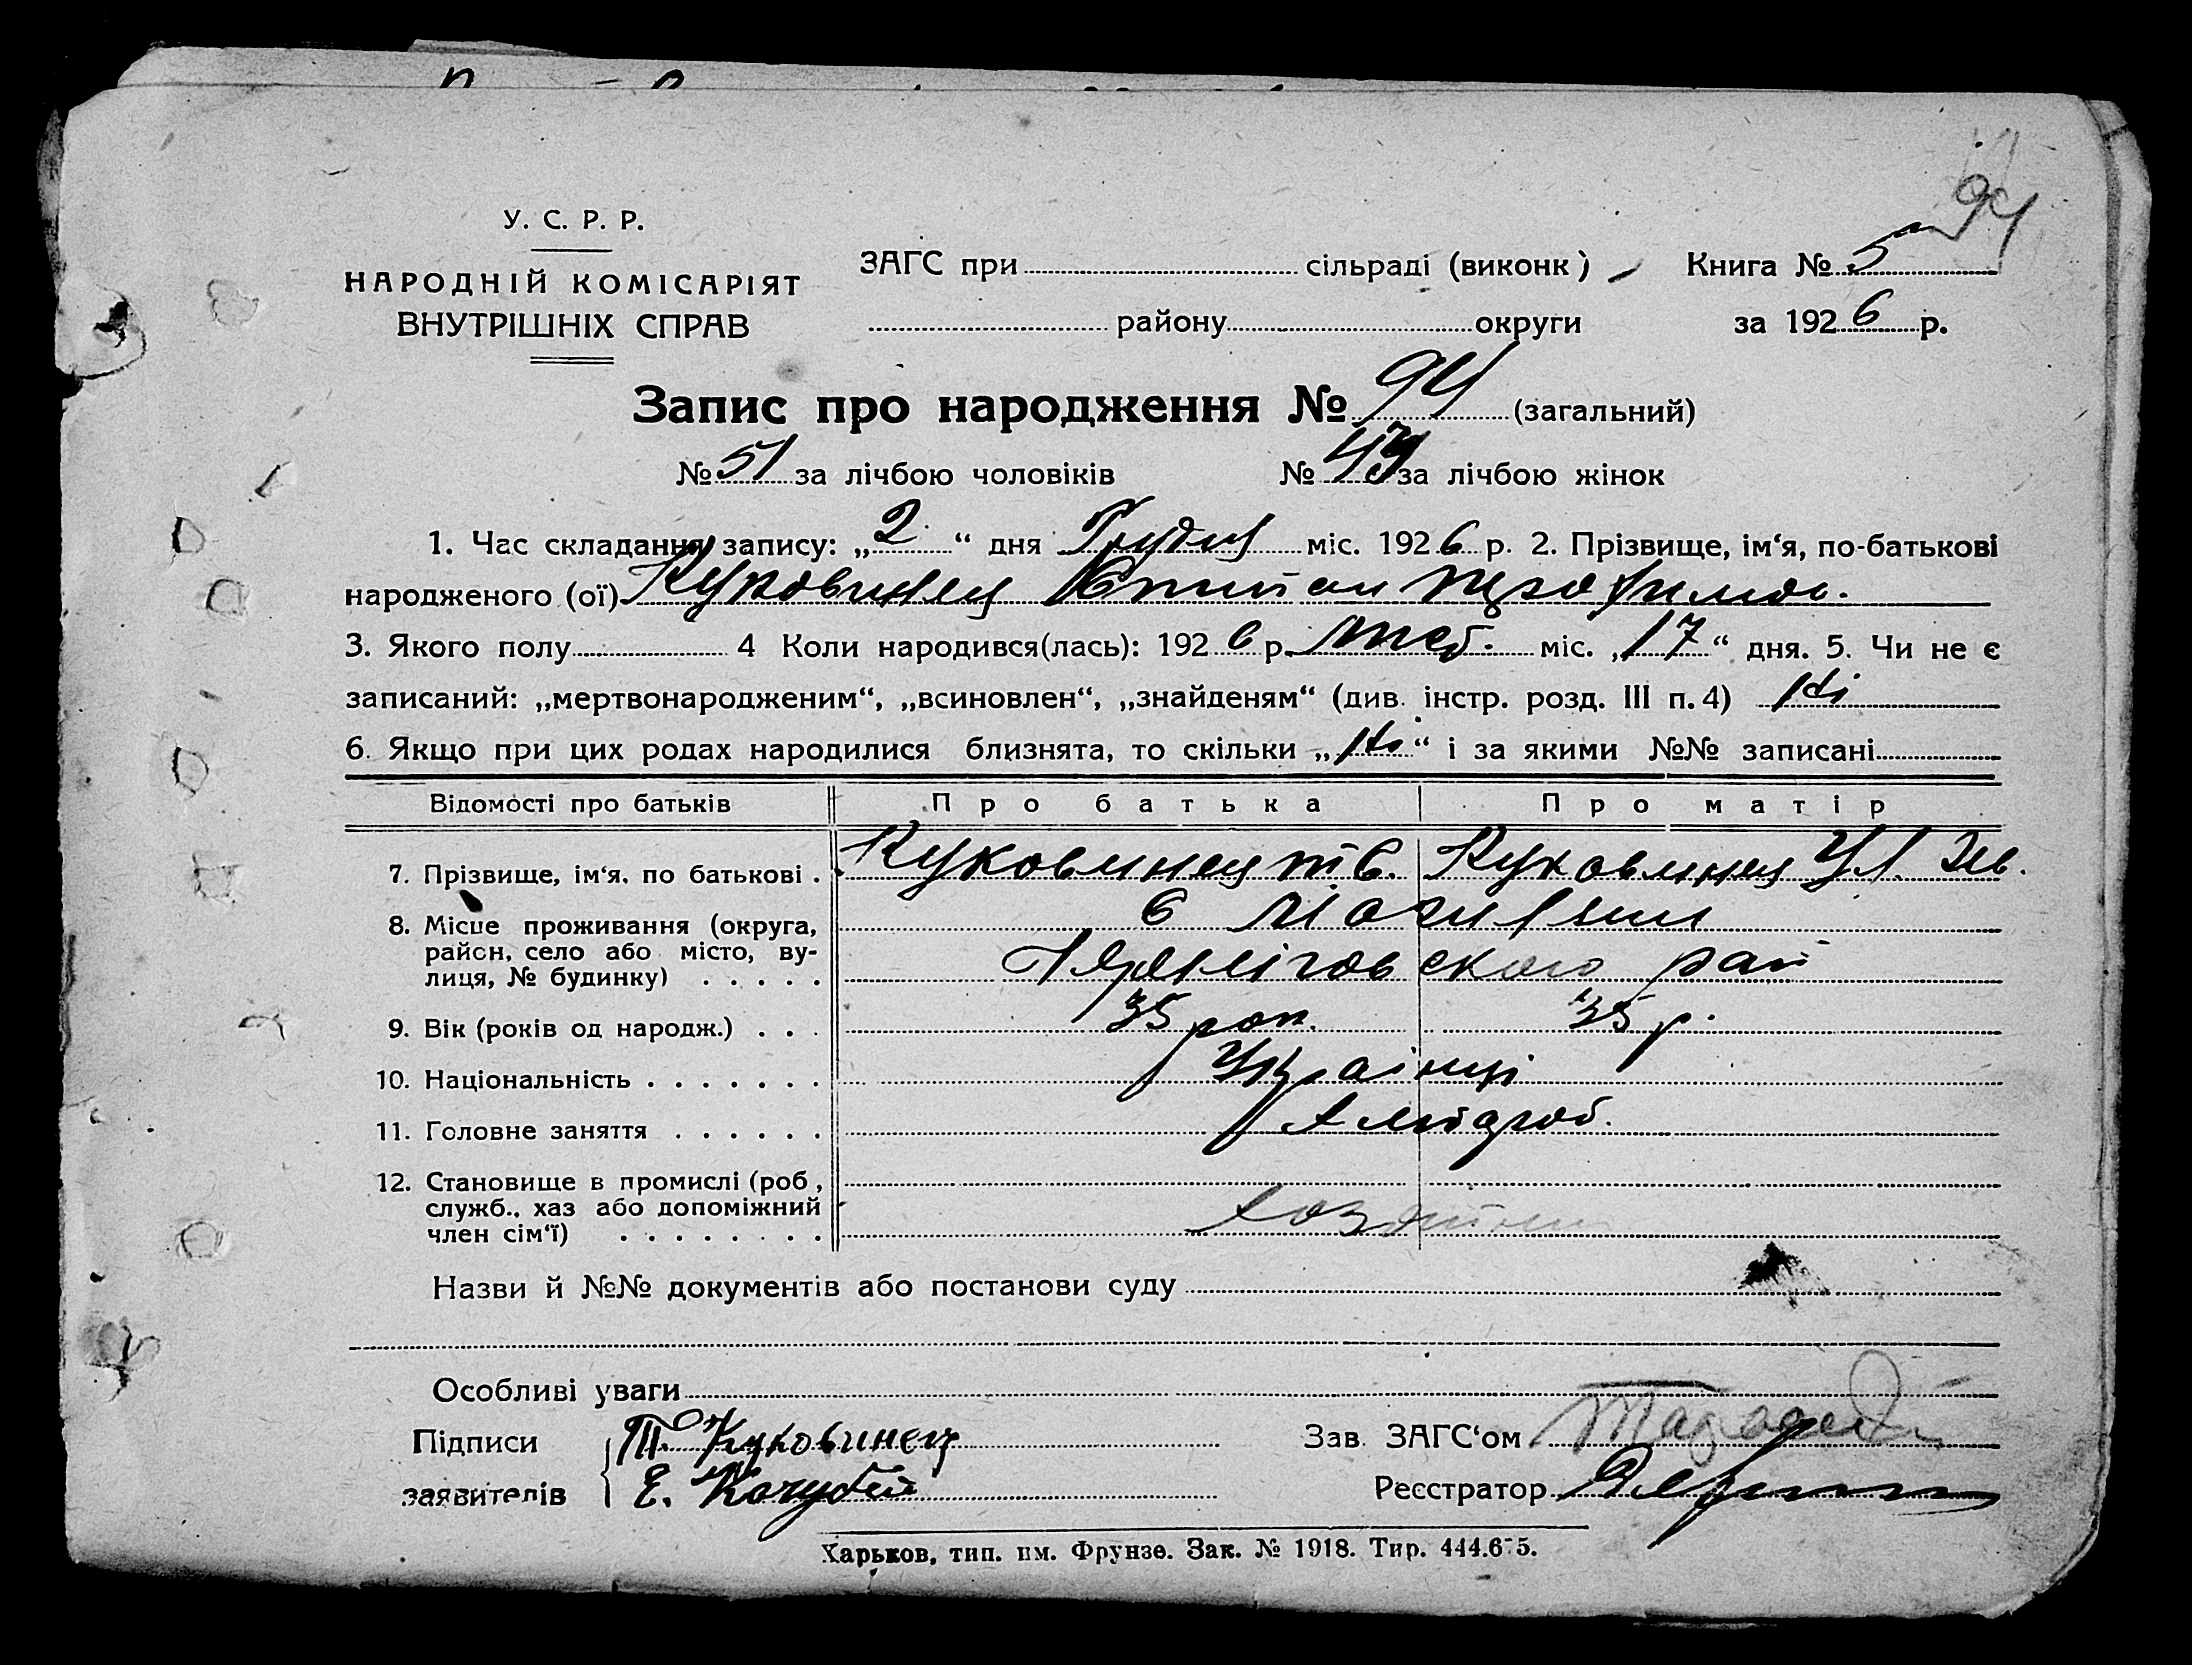 94
У. С. Р. Р.
НАРОДНІЙ КОМІСАРІЯТ
ВНУТРІШНІХ СПРАВ
ЗАГС при сільраді (виконк) Книга № 5
району округи за 1926 р.
Запис про народження № 94 (загальний)
№ 51 за лічбою чоловіків № 43 за лічбою жінок
1. Час складання запису: „2“ дня Грудня міс. 1926 р. 2. Прізвище, ім‘я, по-батькові
народженого (ої) Куковинец
3. Якого полу 4 Коли народився(лась): 1926 р. міс. „17“ дня. 5. Чи не є
записаний: „мертвонародженим“, „всиновлен“, „знайденям“ (див. інстр. розд. III п. 4) Ні
6. Якщо при цих родах народилися близнята, то скільки „Ні“ і за якими №№ записані
Відомості про батьків Про батька Про матір
7. Прізвище, ім‘я, по батькові . Куковинец Куковинец
8. Місце проживання (округа,
район, село або місто, ву-
лиця, № будинку) . . . . . рай
9. Вік (років од народж.) . . . 35 рок. 35 р.
10. Національність . . . . . . . Українці
11. Головне заняття . . . . . .
12. Становище в промислі (роб,
служб., хаз або допоміжний
член сім‘ї) . . . . . . . .
Назви й №№ документів або постанови суду
Особливі уваги
Підписи Т Куковинец Зав. ЗАГС‘ом
заявителів Е. Кочубей Реєстратор
Харьков, тип. им. Фрунзе. Зак. № 1918. Тир. 444.675.